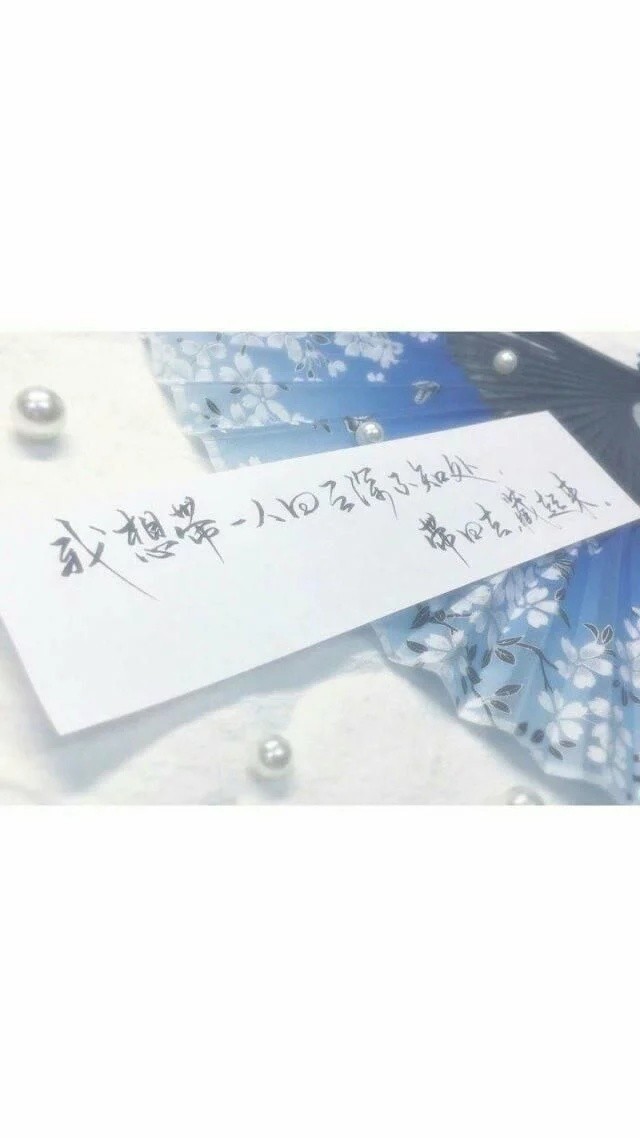 我想带一人回云深不知处，
带回去藏起来。